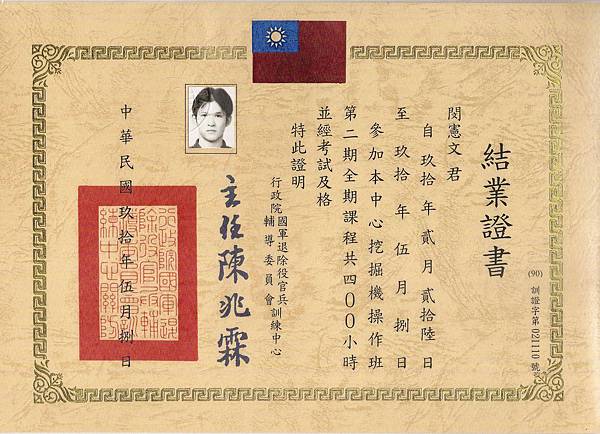 結業證書
(90)訓證字第021110號
閔憲文君
自玖拾年貳月貳拾陸日
至玖拾年伍月捌日
參加本中心挖掘機操作班
第二期全期課程共四00小時
並經考試及格
特此證明
行政院國軍退除役官兵輔導委員會訓練中心
主任陳兆霖
中華民國玖拾年伍月捌日